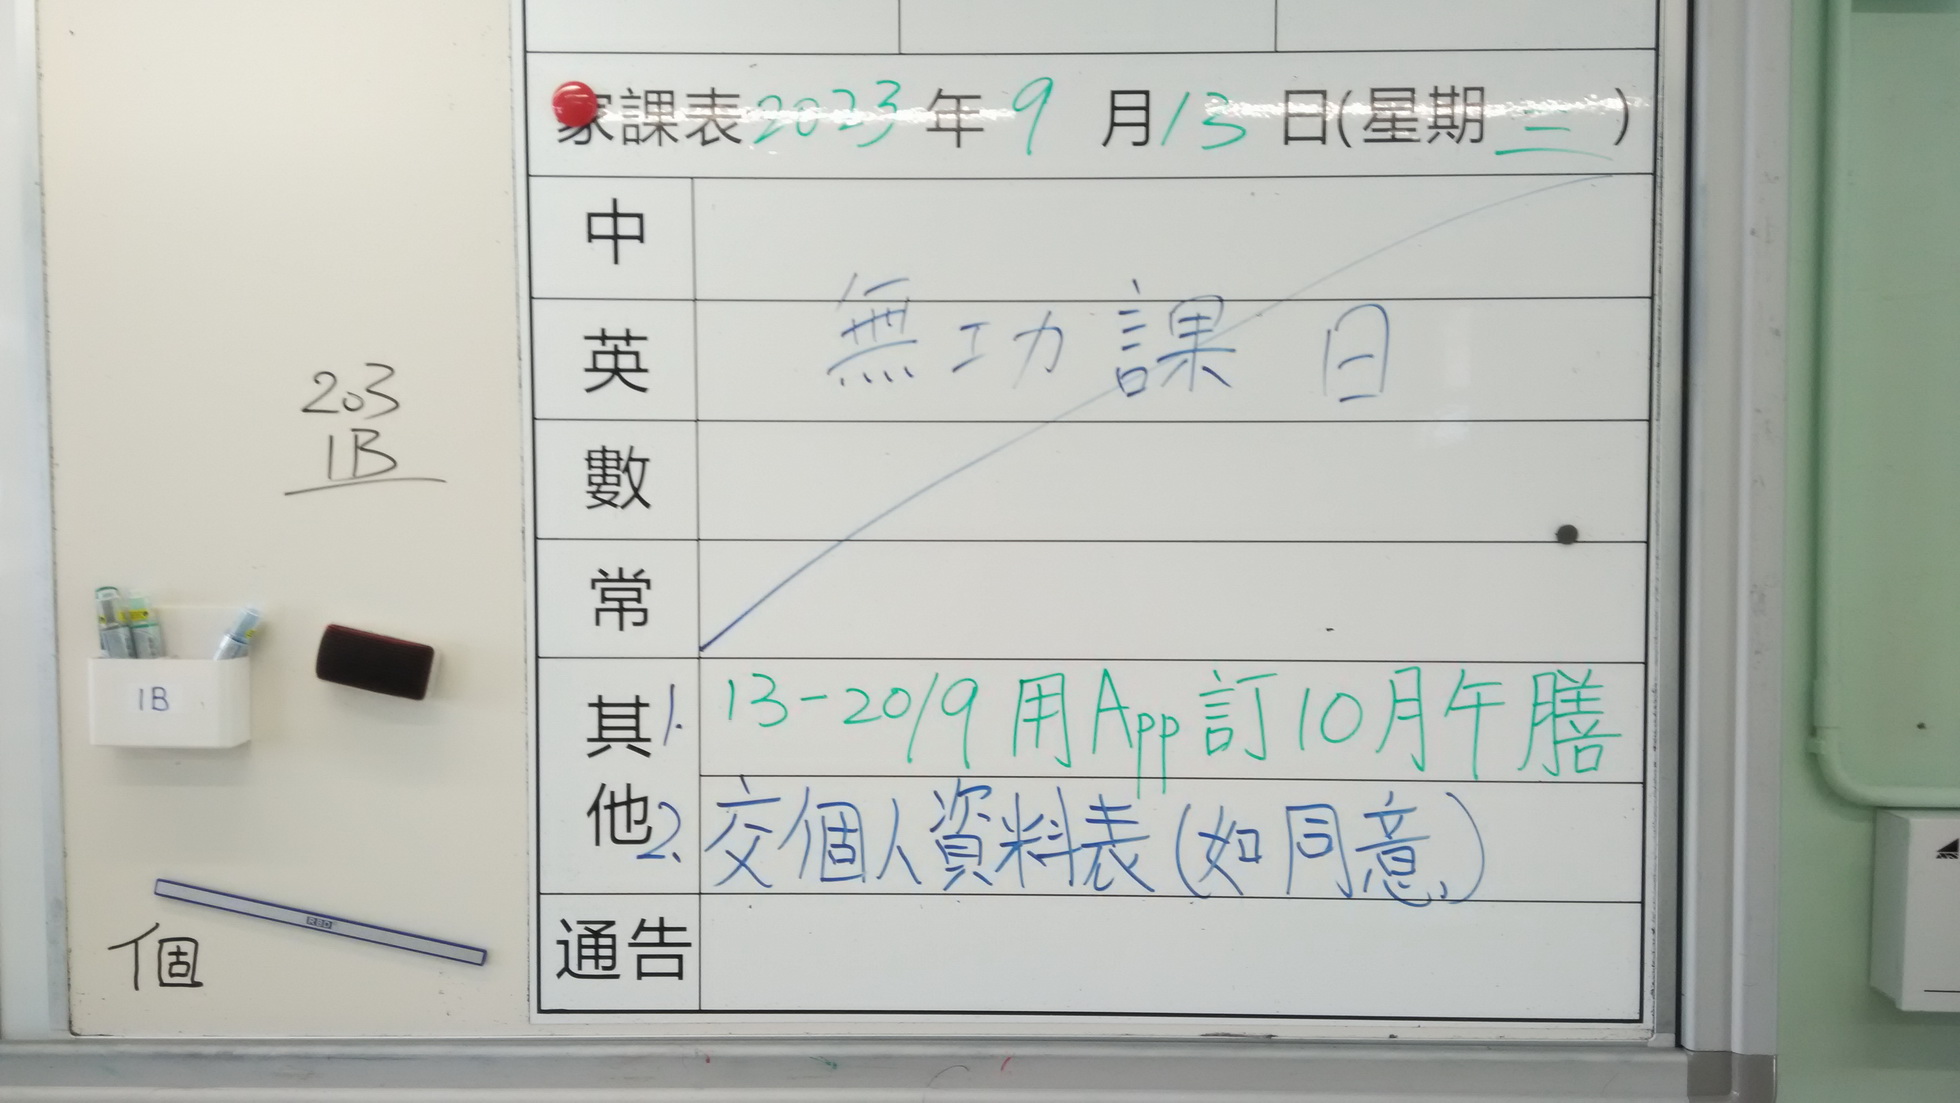 家課表2023年9月13日(星期三)
中
英 無功課日
數
常
其他
1. 13-20/9 用App訂10月午膳
2. 交個人資料表(如同意)
通告
203
1B
1B
RBD
個